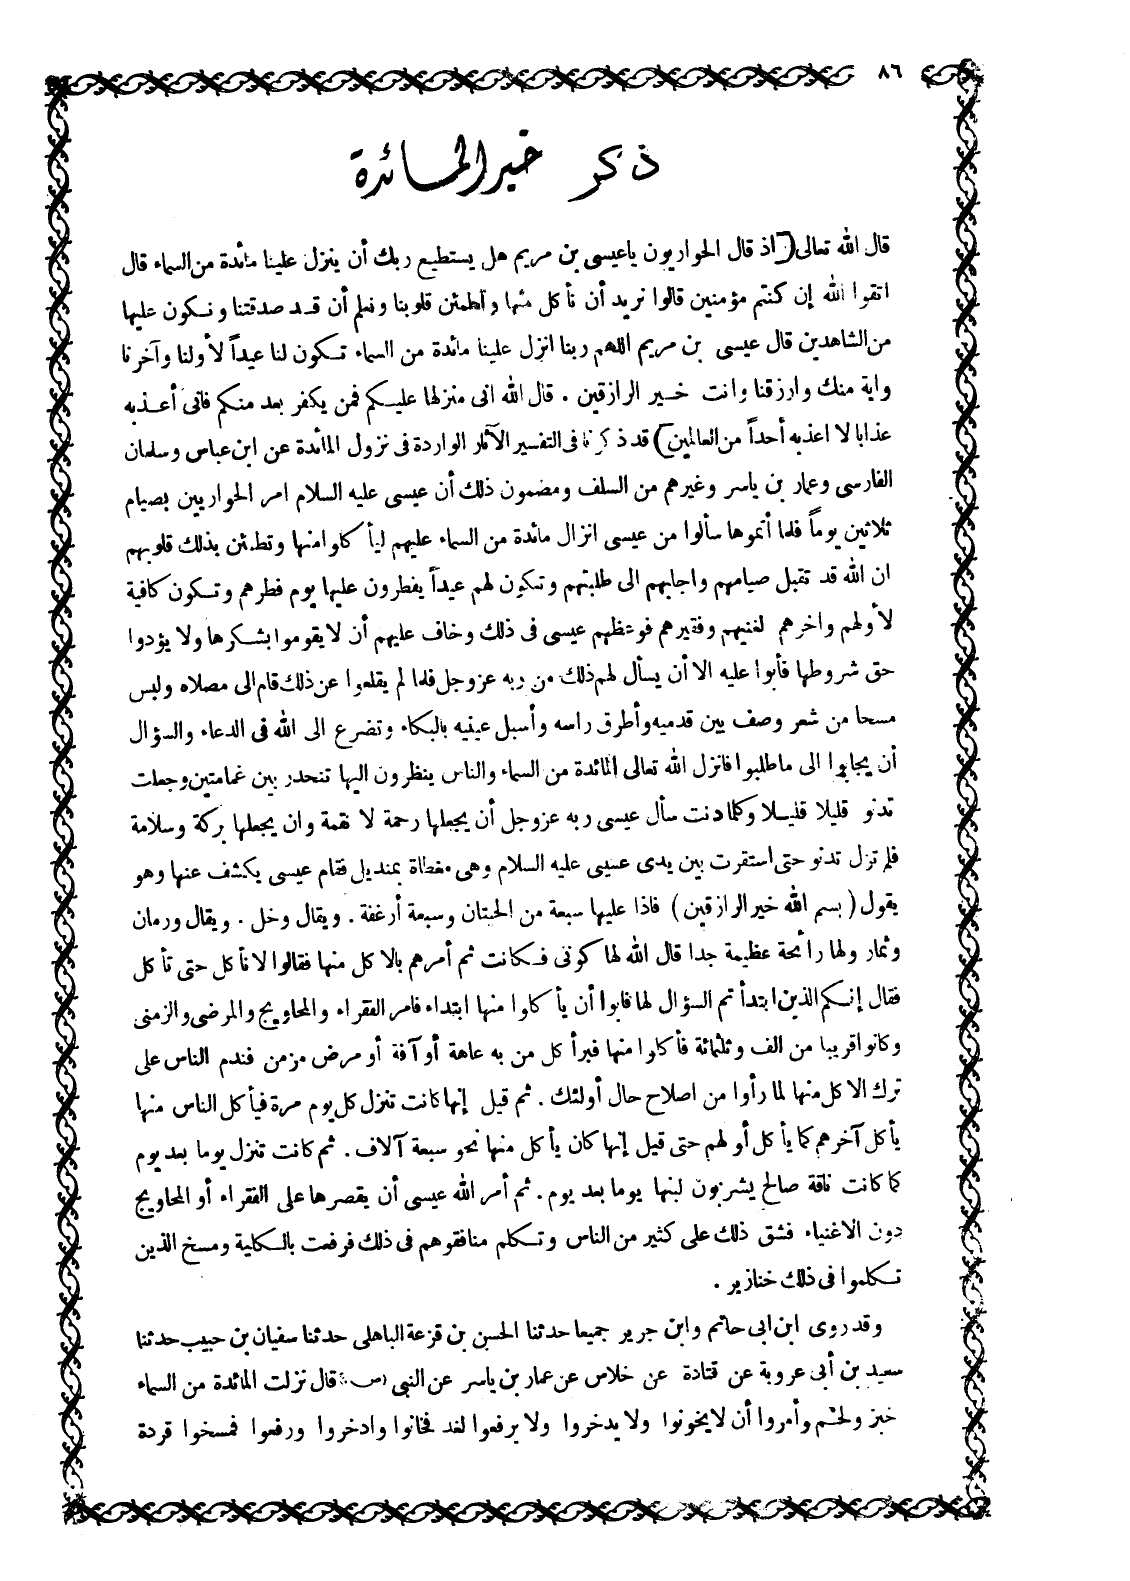 ٨٦
ذكر خبر المائدة
قال الله تعالى ( اذ قال الحواريون ياعيسى بن مريم هل يستطيع ربك أن ينزل علينا مائدة من السماء قال
اتقوا الله إن كنتم مؤمنين قالوا نريد أن نأكل منها وتطمئن قلوبنا ونعلم أن قد صدقتنا ونكون عليها
من الشاهدين قال عيسى بن مريم اللهم ربنا انزل علينا مائدة من السماء تكون لنا عيداً لأولنا وآخرنا
واية منك وارزقنا وانت خير الرازقين . قال الله انى منزلها عليكم فمن يكفر بعد منكم فانى أعذبه
عذابا لا اعذبه أحداً من العالمين ) قد ذكرنا فى التفسير الآثار الواردة فى نزول المائدة عن ابن عباس وسلمان
الفارسى وعمار بن ياسر وغيرهم من السلف ومضمون ذلك أن عيسى عليه السلام امر الحواريين بصيام
ثلاثين يوماً فلما أتموها سألوا من عيسى انزال مائدة من السماء عليهم ليأكلوا منها وتطمئن بذلك قلوبهم
ان الله قد تقبل صيامهم واجابهم الى طلبتهم وتكون لهم عيداً يفطرون عليها يوم فطرهم وتكون كافية
لأولهم واخرهم لغنيهم وفقيرهم فوعظهم عيسى فى ذلك وخاف عليهم أن لا يقوموا بشكرها ولا يؤدوا
حق شروطها فأبوا عليه الا أن يسأل لهم ذلك من ربه عز وجل فلما لم يقلعوا عن ذلك قام الى مصلاه ولبس
مسحا من شعر وصف بين قدميه وأطرق راسه وأسبل عينيه بالبكاء وتضرع الى الله فى الدعاء والسؤال
أن يجابوا الى ما طلبوا فانزل الله تعالى المائدة من السماء والناس ينظرون اليها تنحدر بين غمامتين وجعلت
تدنو قليلا قليلا وكلما دنت سأل عيسى ربه عز وجل أن يجعلها رحمة لا نقمة وان يجعلها بركة وسلامة
فلم تزل تدنو حتى استقرت بين يدى عيسى عليه السلام وهى مغطاة بمنديل فقام عيسى يكشف عنها وهو
يقول ( بسم الله خير الرازقين ) فاذا عليها سبعة من الحيتان وسبعة أرغفة . ويقال وخل . ويقال ورمان
وثمار ولها رائحة عظيمة جدا قال الله لها كونى فكانت ثم أمرهم بالاكل منها فقالوا لا نأكل حتى تأكل
فقال إنكم الذين ابتدأتم السؤال لها فابوا أن يأكلوا منها ابتداء فامر الفقراء والمحاويج والمرضى والزمنى
وكانوا قريبا من الف وثلثمائة فأكلوا منها فبرأ كل من به عاهة أو آفة أو مرض مزمن فندم الناس على
ترك الاكل منها لما رأوا من اصلاح حال أولئك . ثم قيل إنها كانت تنزل كل يوم مرة فيأكل الناس منها
يأكل آخرهم كما يأكل أولهم حتى قيل إنها كان يأكل منها نحو سبعة آلاف . ثم كانت تنزل يوما بعد يوم
كما كانت ناقة صالح يشربون لبنها يوما بعد يوم . ثم أمر الله عيسى أن يقصرها على الفقراء أو المحاويج
دون الاغنياء فشق ذلك على كثير من الناس وتكلم منافقوهم فى ذلك فرفعت بالكلية ومسخ الذين
تكلموا فى ذلك خنازير .
وقد روى ابن ابى حاتم وابن جرير جميعا حدثنا الحسن بن قزعة الباهلى حدثنا سفيان بن حبيب حدثنا
سعيد بن أبى عروبة عن قتادة عن خلاس عن عمار بن ياسر عن النبى (ص) قال نزلت المائدة من السماء
خبز ولحم وأمروا أن لا يخونوا ولا يدخروا ولا يرفعوا لغد فخانوا وادخروا ورفعوا فمسخوا قردة